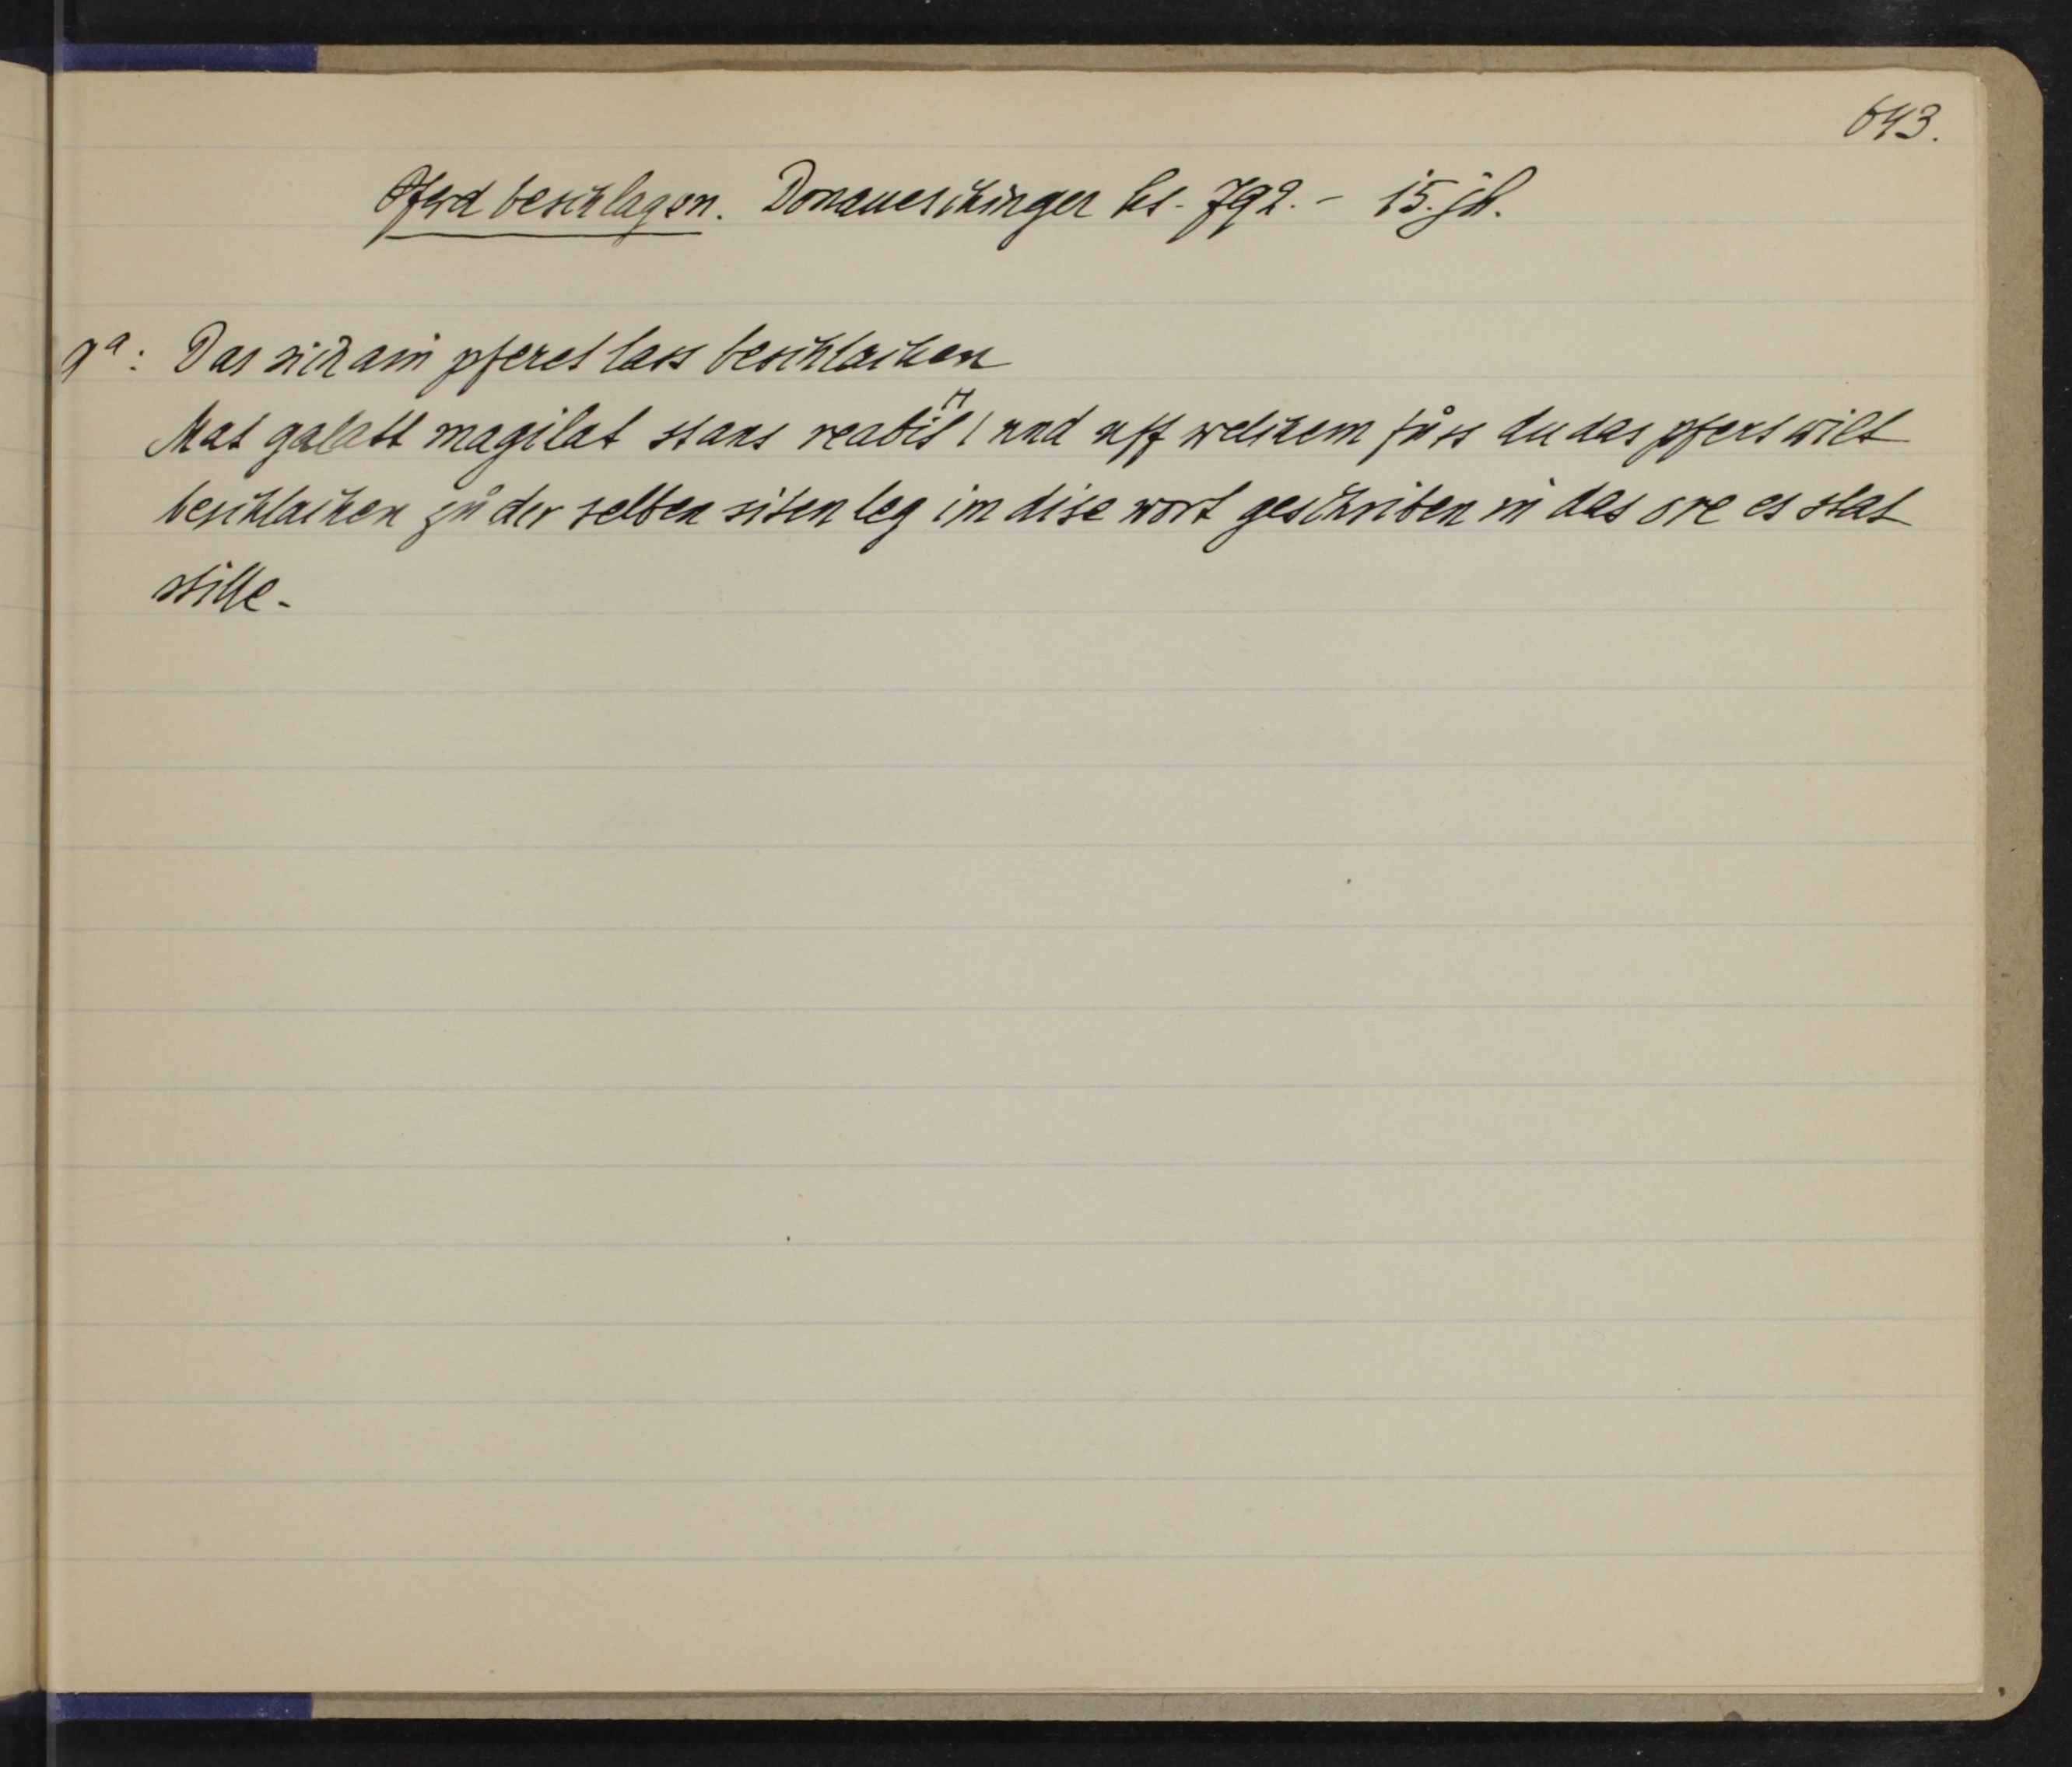 643.
Pferd beschlagen. Donaueschinger hs. 792. - 15. jh.
9a: Das sich ain pferet lass beschlachen
Mat galatt magilat stans reabil und uff welchem fůss du das pfert wilt
beschlachen zů der selben siten leg im dise wort geschriben in das ore es stat
stille.